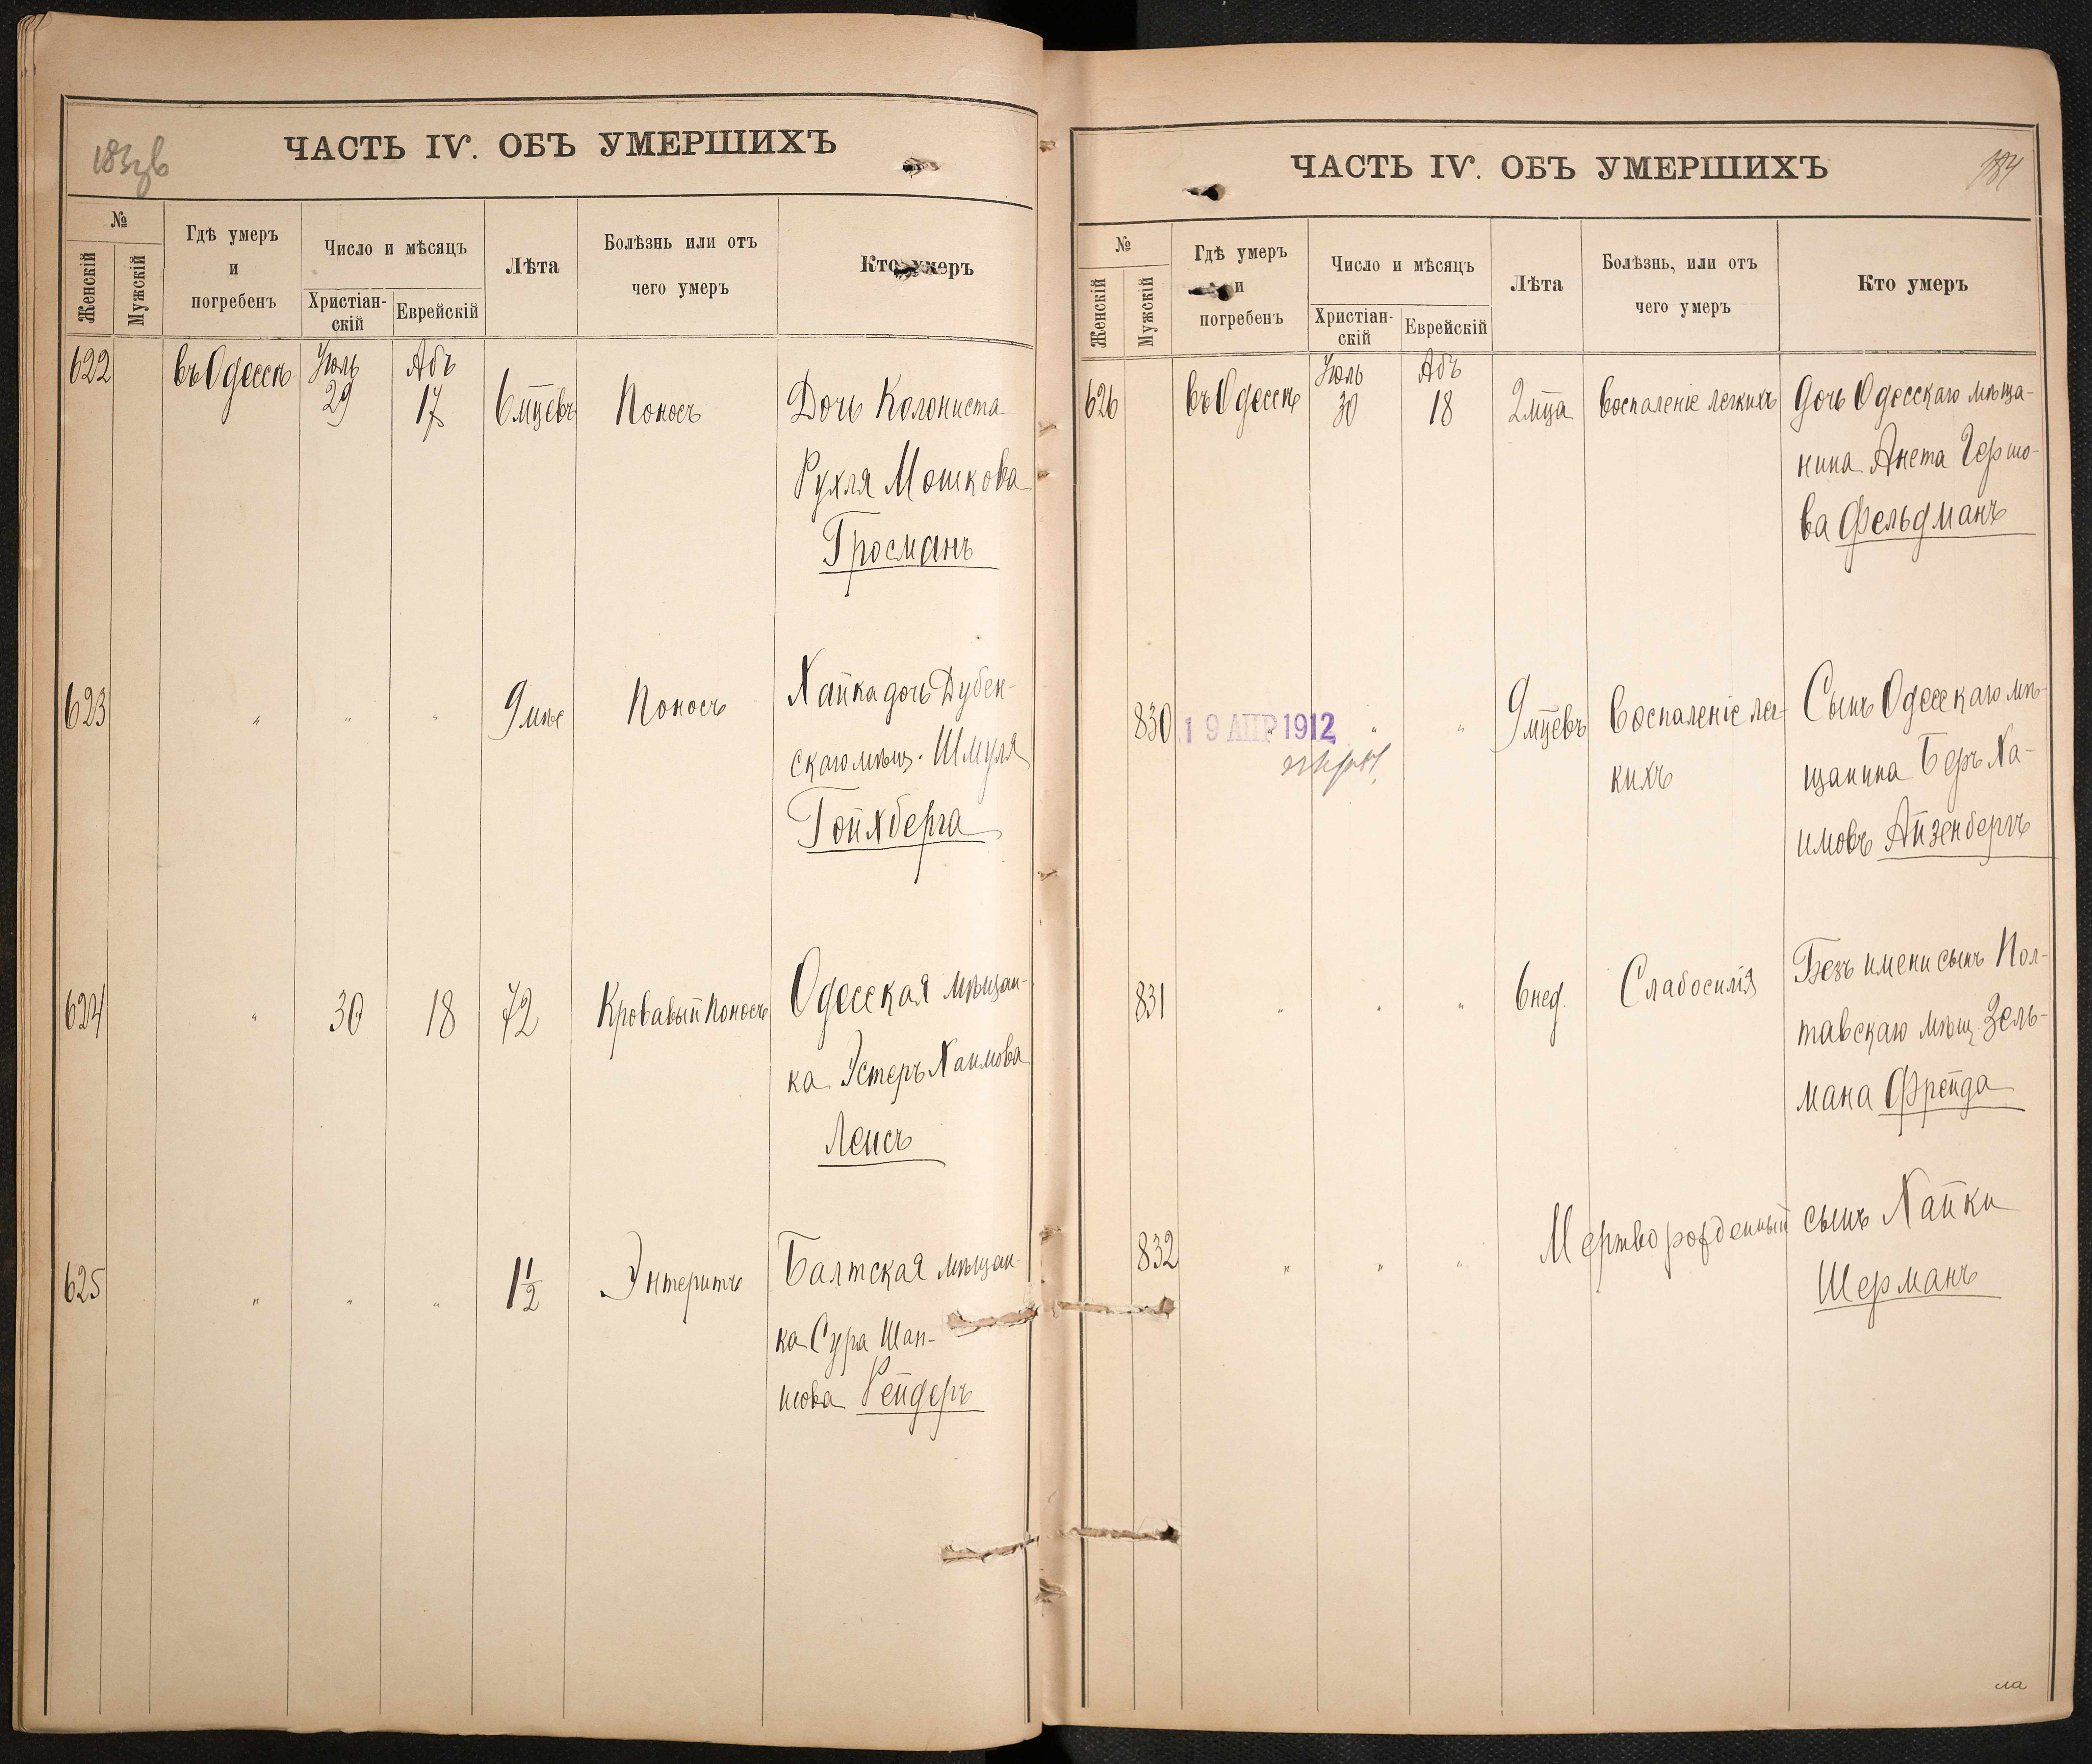 183об
ЧАСТЬ IV. ОБЪ УМЕРШИХЪ
№
Женскій
Мужскій
Гдѣ умеръ
и
погребенъ
Число и мѣсяцъ
Христіан-
скій
Еврейскій
Лѣта
Болѣзнь или отъ
чего умеръ
Кто умеръ
622 въ Одессѣ Іюль 29 Абъ 17 6 мцевъ Поносъ Дочь Колониста
Рухля Мошкова
Гросманъ
623 " " " 9 мѣс Поносъ Хайка дочь Дубен-
скаго мѣщ. Шмуля
Гойхберга
624 " 30 18 72 Кровавый Поносъ Одесская мѣщан-
ка Эстеръ Хаимова
Леисъ
625 " " " 1 1/2 Энтеритъ Балтская мѣщан-
ка Сура Шап-
шова Рейдеръ
184
ЧАСТЬ IV. ОБЪ УМЕРШИХЪ
№
Женскій
Мужскій
Гдѣ умеръ
и
погребенъ
Число и мѣсяцъ
Христіан-
скій
Еврейскій
Лѣта
Болѣзнь, или отъ
чего умеръ
Кто умеръ
626 въ Одессѣ Іюль 30 Абъ 18 2 мца Воспаленіе легкихъ Дочь Одесскаго мѣща-
нина Анета Гершо-
ва Фельдманъ
830 19 АПР 1912 " " " 9 мцевъ Воспаленіе лег- Сынъ Одесскаго мѣ-
кихъ щанина Беръ Ха-
имовъ Айзенбергъ
831 " " " 6 нед. Слабосилія Безъ имени сынъ Пол-
тавскаго мѣщ. Зель-
мана Фрейда
832 " " " Мертворожденный сынъ Хайки
Шерманъ